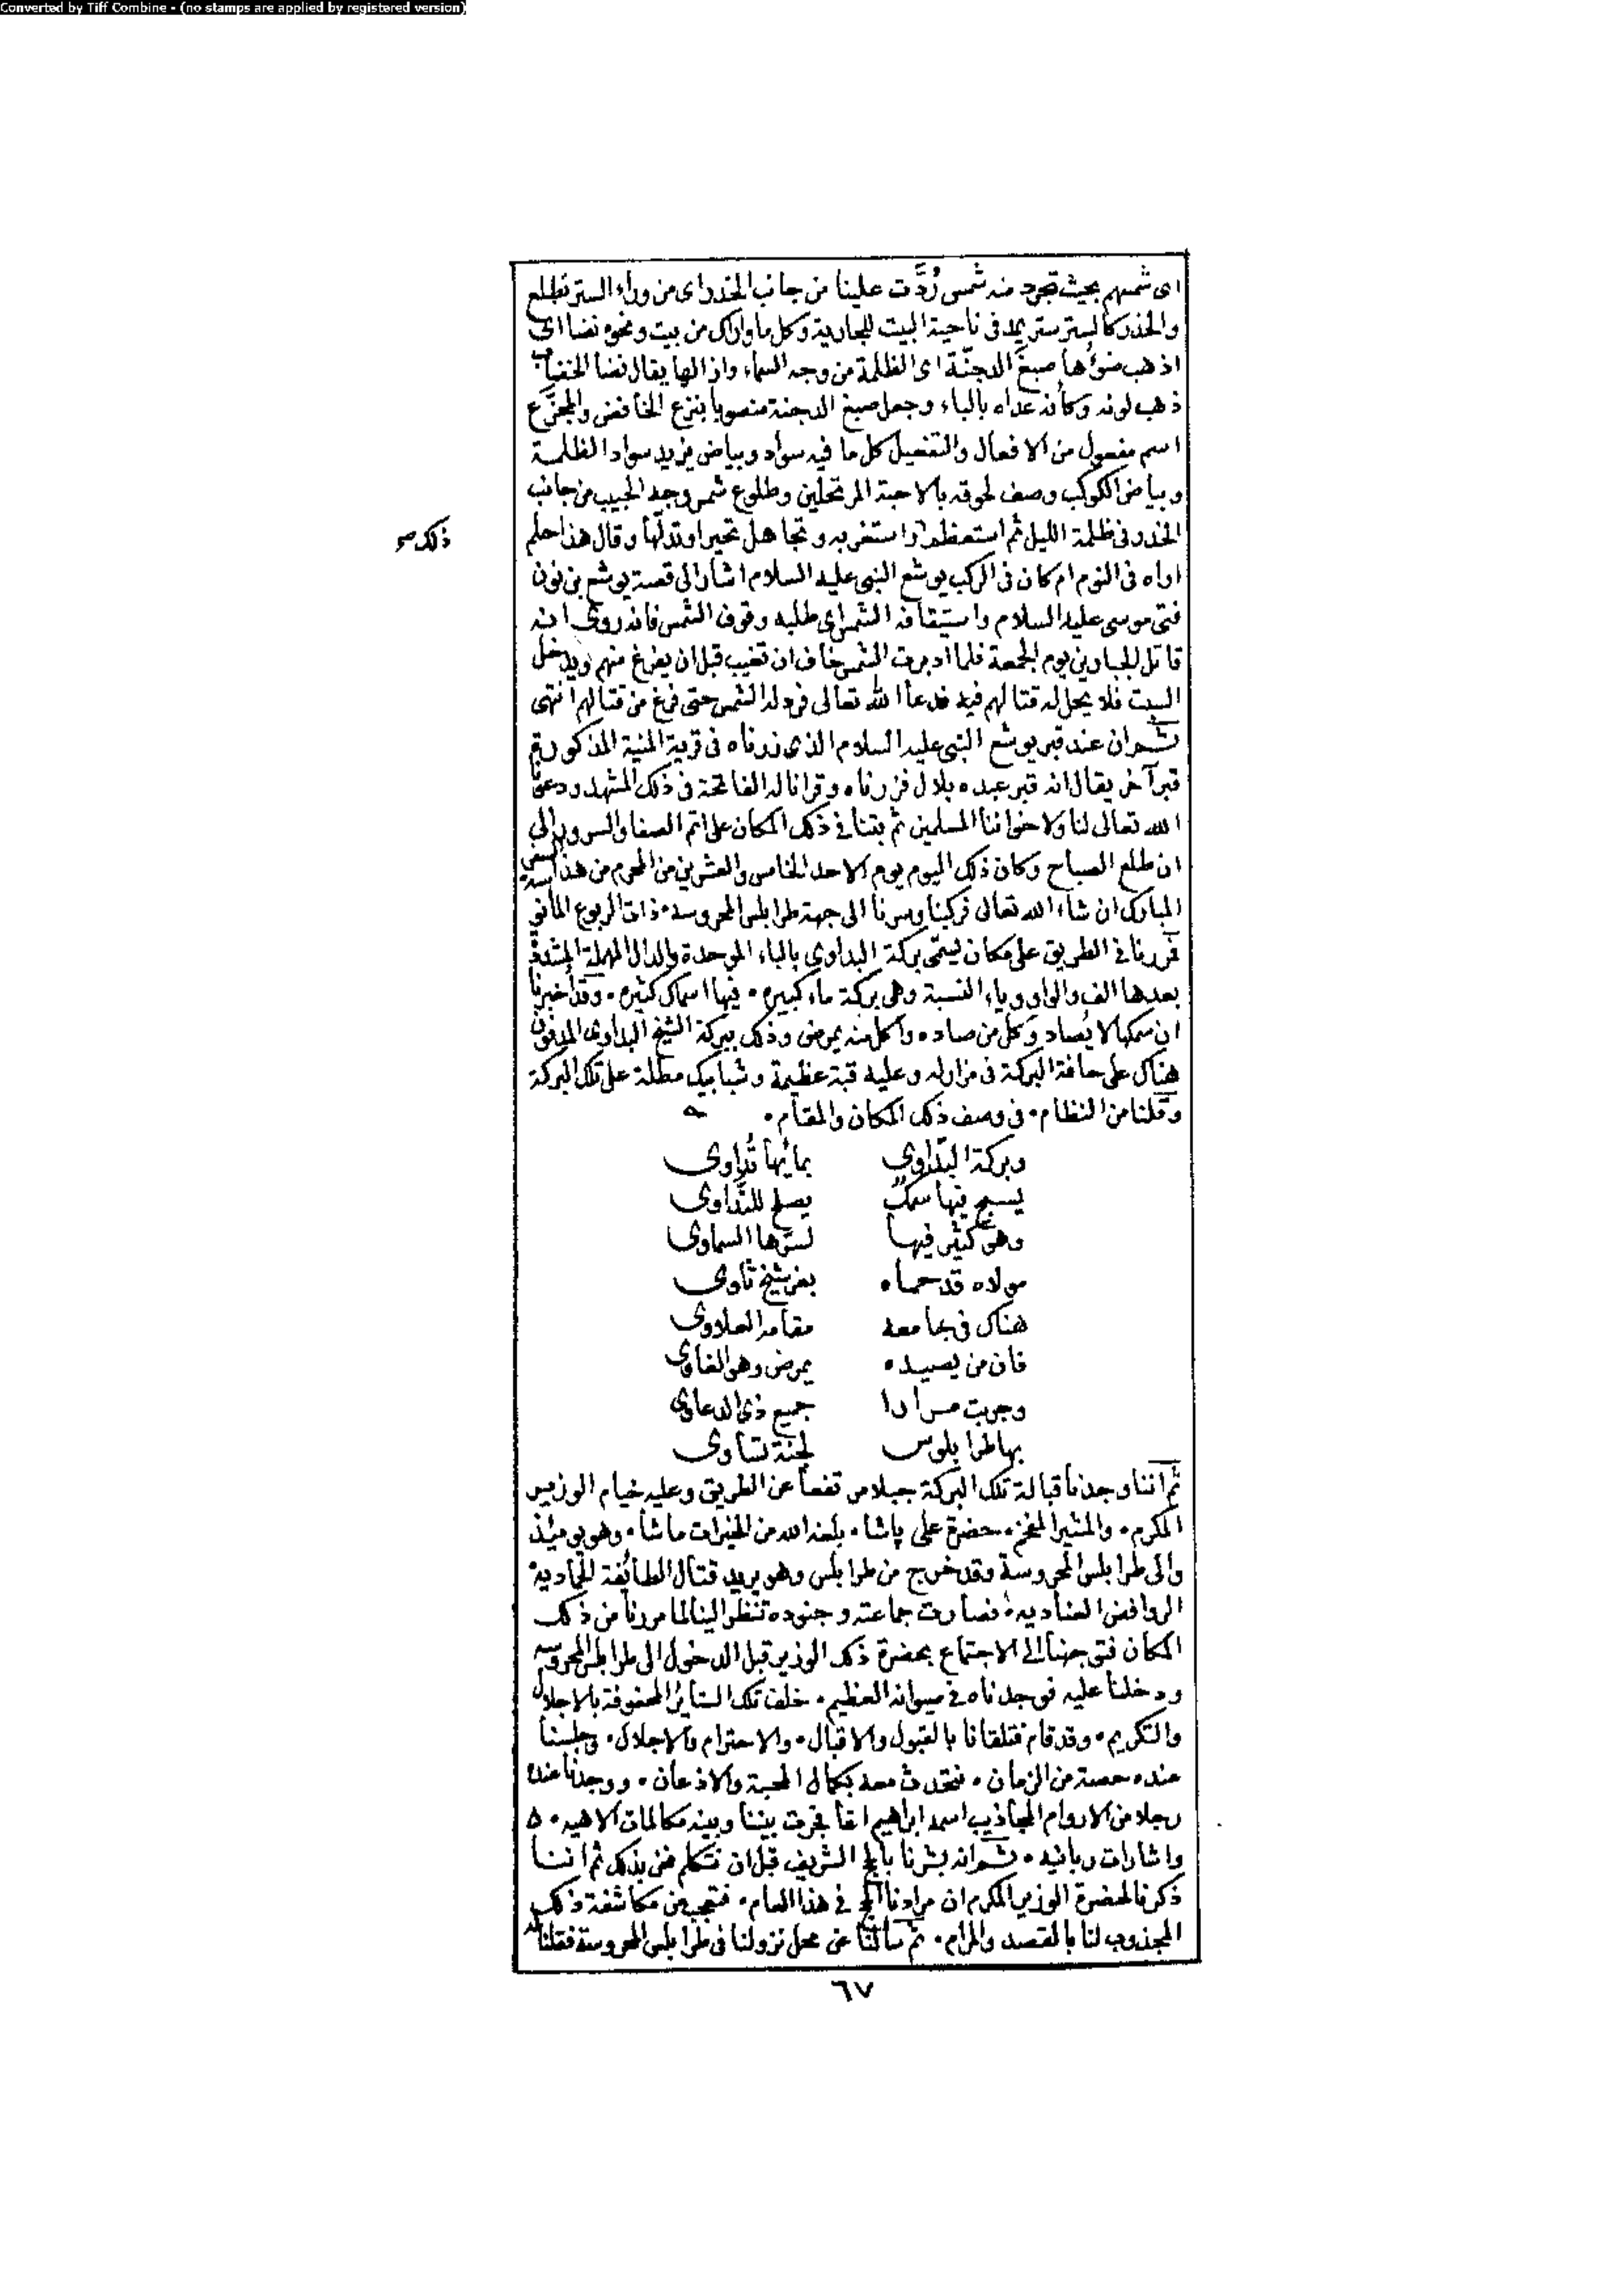 Converted by Tiff Combine - (no stamps are applied by registered version)
اى شمسهم بحيث تجرد منه شمس رُدَّت علينا من جانب الخدر اى من وراء الستر تطلع
والخدر كالستر ستر يمد فى ناحية البيت للجارية وكل ما واراك من بيت ونحوه نضا اى
اذهب ضوءها صبغَ الدجنّة اى الظلمة من وجه السماء وازالها يقال نضا الخضاب
ذهب لونه وكأنه عداه بالباء وجعل صبغ الدجنة منصوبا بنزع الخافض والمجزَّع
اسم مفعول من الافعال والتفعيل كل ما فيه سواد وبياض يريد سواد الظلمة
وبياض الكوكب وصف لحوقه بالاحبة المرتحلين وطلوع شمس وجه الحبيب من جانب
الخدر فى ظلمة الليل ثم استعظم واستغربه وتجاهل تحيرا وتدلّها وقال هذا حلم
ذلك صح
اراه فى النوم ام كان فى الركب يوشع النبى عليه السلام اشار الى قصة يوشع بن نون
فتى موسى عليه السلام واستيقافه الشمس اى طلبه وقوف الشمس فانه روى انه
قاتل الجبارين يوم الجمعة فلما ادبرت الشمس خاف ان تغيب قبل ان يفرغ منهم ويدخل
السبت فلا يحل له قتالهم فيه فدعا الله تعالى فرد له الشمس حتى فرغ من قتالهم انتهى
ثم ان عند قبر يوشع النبى عليه السلام الذى زرناه فى قرية المنية المذكورة
قبر آخر يقال انه قبر عبده بلال فزرناه وقرانا له الفاتحة فى ذلك المشهد ودعونا
الله تعالى لنا ولاخواننا المسلمين ثم بتنا فى ذلك المكان على اتم الصفا والسرور الى
ان طلع الصباح وكان ذلك اليوم يوم الاحد الخامس والعشرين من المحرم من هذا السفر
المبارك ان شاء الله تعالى فركبنا وسرنا الى جهة طرابلس المحروسه ٠ ذات الربوع المأنو
فمررنا فى الطريق على مكان يسمّى بركة البداوى بالباء الموحدة والدال المهملة المشددة
بعدها الف والواو وياء النسبة وهى بركة ماء كبيره ٠ فيها اسماك كثيره ٠ وقد أخبرنا
ان سمكها لا يُصاد وكل من صاده وأكل منه يمرض وذلك ببركة الشيخ البداوى المدفون
هناك على حافة البركة فى مزار له وعليه قبة عظيمة وشبابيك مطلة على تلك البركة
وقلنا من النظام ٠ فى وصف ذلك المكان والمقام ٠
وبركة البدّاوى بمائها تُداوى
يسبح فيها سمكٌ يصلح للتداوى
وهو كثير فيها لسرّها السماوى
مولاه قد حماه بعز شيخ ثاوى
هناك فى جامعه مقامه العلاوى
فان من يصيده يمرض وهو الغاوى
وجربت مرارا جميع ذى الدعاوى
بها طرابلوس لجنة تساوى
ثم اننا وجدنا قبالة تلك البركة جبلا مرتفعا عن الطريق وعليه خيام الوزير
المكرم ٠ والمشير المفخم ٠ حضرة على پاشا ٠ بلغه الله من الخيرات ما شا ٠ وهو يومئذ
والى طرابلس المحروسة وقد خرج من طرابلس وهو يريد قتال الطائفة الحماديه
الروافض العناديه فصارت جماعته وجنوده تنظر الينا لما مررنا من ذلك
المكان فتوجهنا الى الاجتماع بحضرة ذلك الوزير قبل الدخول الى طرابلس المحروسه
ودخلنا عليه فوجدناه فى صيوانه العظيم ٠ خلف تلك الستائر المحفوفة بالاجلال
والتكريم ٠ وقد قام فتلقانا بالقبول والاقبال ٠ والاحترام والاجلال ٠ وجلسنا
عنده حصة من الزمان ٠ نتحدث معه بكمال المحبة والاذعان ٠ ووجدنا عنده
رجلا من الاروام المجاذيب اسمه ابراهيم اغا فجرت بيننا وبينه مكالمات الاهيه ٠
واشارات ربانيه ٠ ثم انه بشرنا بالحج الشريف قبل ان نتكلم نحن بذلك ثم اننا
ذكرنا لحضرة الوزير المكرم ان مرادنا الحج فى هذا العام ٠ فتعجب من مكاشفة ذلك
المجذوب لنا بالمقصد والمرام ٠ ثم سألنا عن محل نزولنا فى طرابلس المحروسة فقلنا له
٦٧